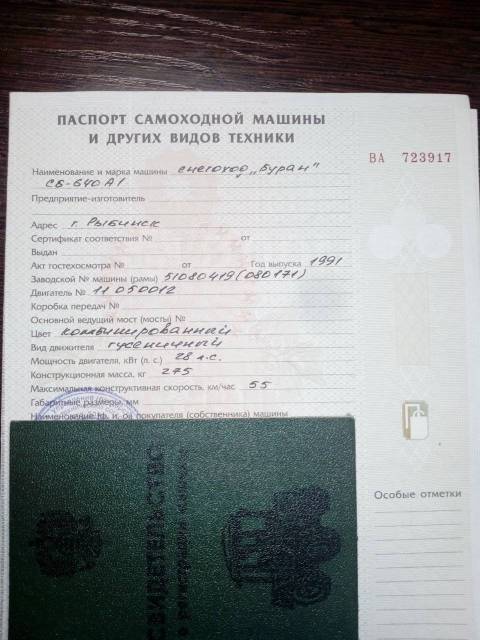 ПАСПОРТ САМОХОДНОЙ МАШИНЫ
И ДРУГИХ ВИДОВ ТЕХНИКИ
ВА 723917
Наименование и марка машины снегоход „Буран"
СБ-640А1
Предприятие-изготовитель
Адрес г. Рыбинск
Сертификат соответствия № от
Выдан
Акт гостехосмотра № от Год выпуска 1991
Заводской № машины (рамы) 51080419 (080171)
Двигатель № 11050012
Коробка передач №
Основной ведущий мост (мосты) №
Цвет комбинированный
Вид движителя гусеничный
Мощность двигателя, кВт (л. с.) 28 л.с.
Конструкционная масса, кг 275
Максимальная конструктивная скорость, км/час 55
Габаритные размеры, мм
покупателя (собственника) машины
Особые отметки
СВИДЕТЕЛЬСТВО
о регистрации машины